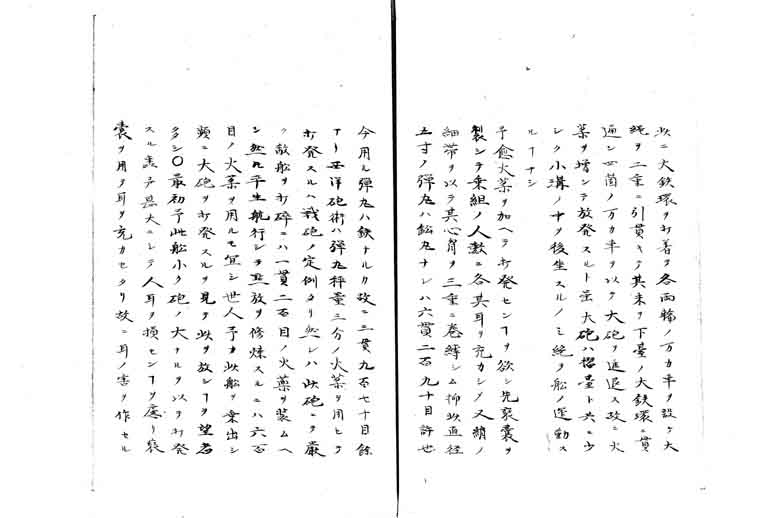 此ニ大鉄環ヲ打着ケ各両輪ノ万力車ヲ設ケ大
縄ヲ二重ニ引貫キテ其末ヲ下臺ノ大鉄環ニ貫
通シ四箇ノ万力車ヲ以テ大砲ヲ進退ス故ニ火
薬ヲ増シテ放発スルト雖大砲ハ榴臺ト共ニウ
レク小溝ノ中ヲ後坐スルノミ絶ヲ船ノ運動ス
ルヿナシ
予愈火薬ヲ加ヘテ打発センヿヲ欲シ先裘嚢ヲ
製シテ乗組ノ人数ニ各其耳ヲ充カシメ又綃ノ
細帯ヲ以テ其心胷ヲ三重ニ巻縛シム抑此直径
五寸ノ弾丸ハ鉛丸ナレハ六貫二百九十目許也
今用ル弾丸ハ鉄ナルカ故ニ三貫九百七十目餘
ナリ西洋砲術ハ弾丸秤量三分ノ火薬ヲ用ヒテ
打発スルハ戦砲ノ定例タリ然レハ此砲ニテ厳
ク敵船ヲ打碎ニハ一貫二百目ノ火薬ヲ装ムヘ
シ然凡平生航行シテ点放ヲ修煉スルニハ六百
目ノ火薬ヲ用ルモ宜シ世人予カ此船ヲ乗出シ
頻ニ大砲ヲ打発スルヲ見テ此ヲ放シヿヲ望者
多シ〇最初予此船小ク砲ノ大ナルヲ以テ打発
スル声甚大ニシテ人耳ヲ損センヿヲ慮リ裘
嚢ヲ用テ耳ヲ充カセタリ故ニ耳ノ害ヲ作セル